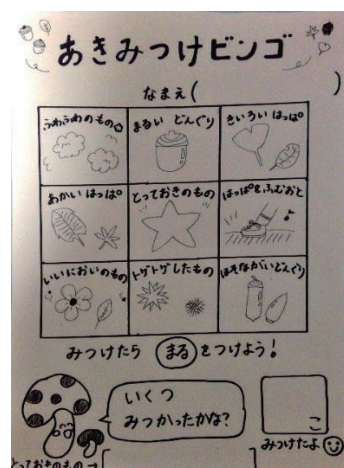 あきみつけビンゴ
なまえ(　　　)
ふわふわのもの
まるい どんぐり
きいろい はっぱ
あかい はっぱ
とっておきのもの
はっぱをふむおと
いいにおいのもの
トゲトゲしたもの
ほそながいどんぐり
みつけたら まる をつけよう!
いくつ
みつかったかな?
こ
みつけたよ
とっておきのもの→